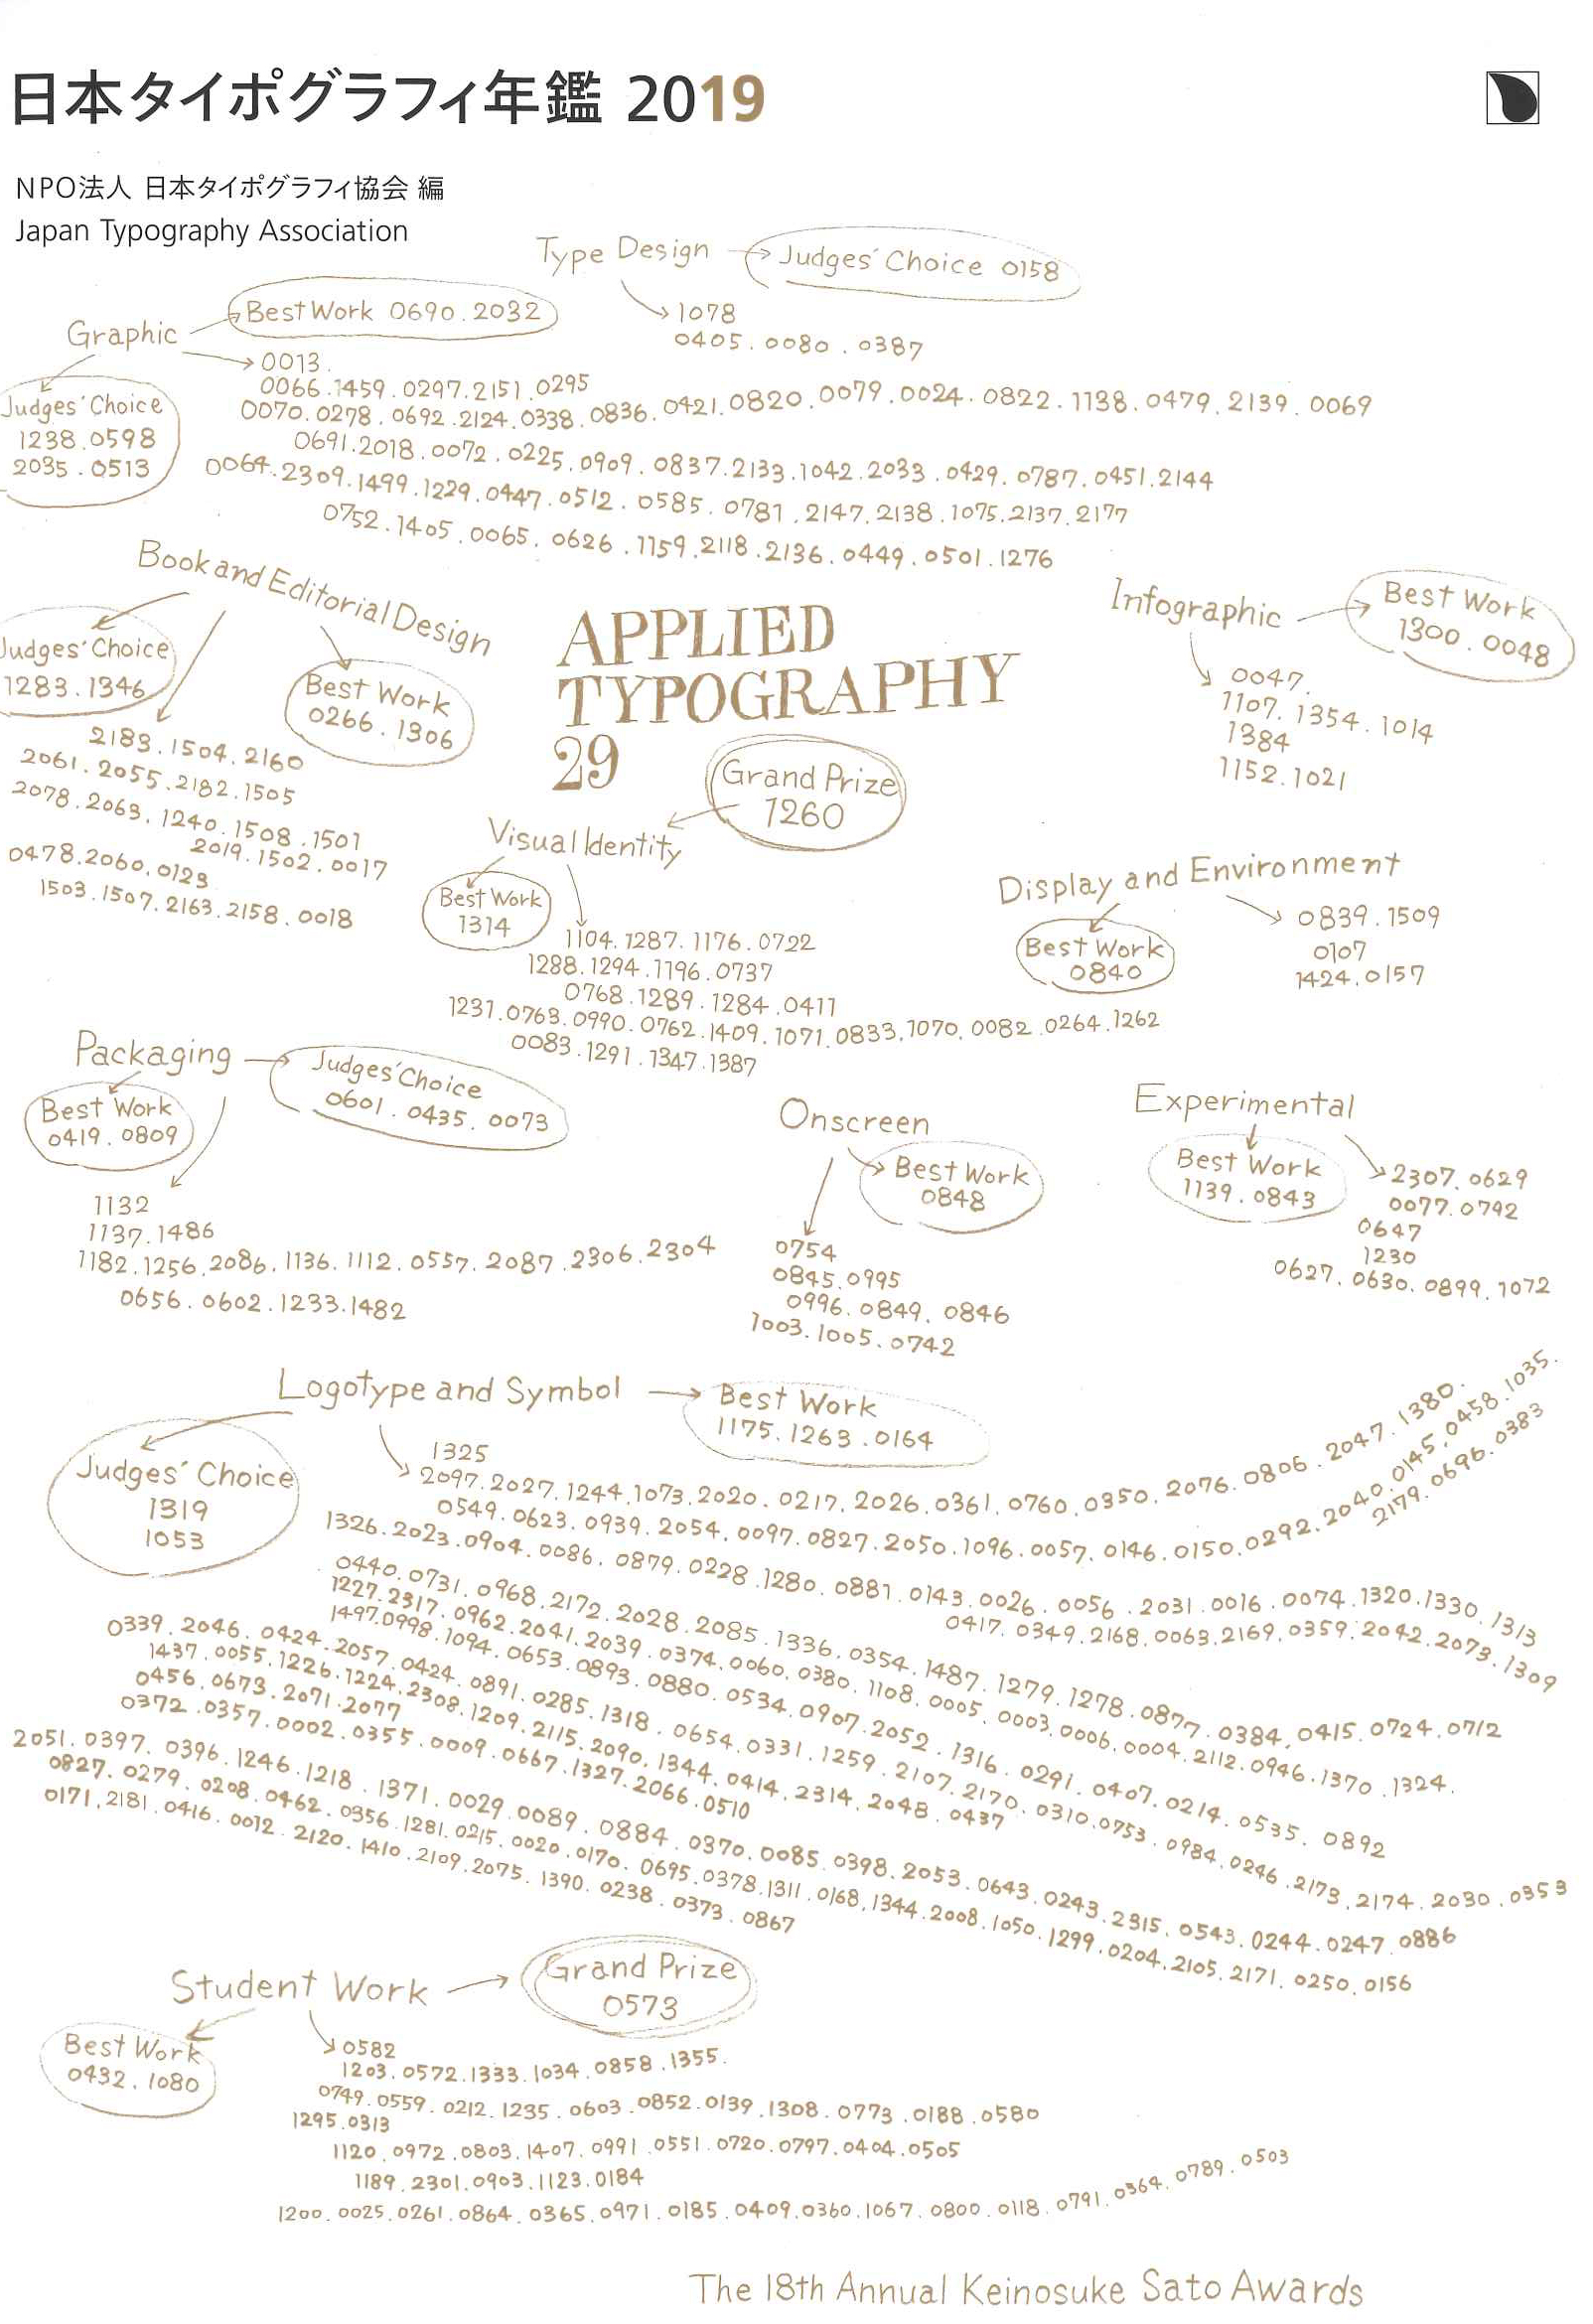 日本タイポグラフィ年鑑 2019
NPO法人 日本タイポグラフィ協会 編
Japan Typography Association
Type Design
Judges' Choice 0158
1078
0405.0080.0387
Graphic
Best Work 0690.2032
Judges' Choice
1238.0598
2035.0513
0013.
0066.1459.0297.2151.0295
0070.0278.0692.2124.0338.0836.0421.0820.0079.0024.0822.1138.0479.2139.0069
0691.2018.0072.0225.0909.0837.2133.1042.2033.0429.0787.0451.2144
0064.2309.1499.1229.0447.0512.0585.0781.2147.2138.1075.2137.2177
0752.1405.0065.0626.1159.2118.2136.0449.0501.1276
Book and Editorial Design
Judges' Choice
1283.1346
Best Work
0266.1306
2183.1504.2160
2061.2055.2182.1505
2078.2063.1240.1508.1501
2019.1502.0017
0478.2060.0123
1503.1507.2163.2158.0018
APPLIED
TYPOGRAPHY
29
Infographic
Best Work
1300.0048
0047.
1107.1354.1014
1384
1152.1021
Grand Prize
1260
Visual Identity
Best Work
1314
1104.1287.1176.0722
1288.1294.1196.0737
0768.1289.1284.0411
1231.0763.0990.0762.1409.1071.0833.1070.0082.0264.1262
0083.1291.1347.1387
Display and Environment
Best Work
0840
0839.1509
0107
1424.0157
Packaging
Judges' Choice
0601.0435.0073
Best Work
0419.0809
1132
1137.1486
1182.1256.2086.1136.1112.0557.2087.2306.2304
0656.0602.1233.1482
Onscreen
Best Work
0848
0754
0845.0995
0996.0849.0846
1003.1005.0742
Experimental
Best Work
1139.0843
2307.0629
0077.0792
0647
1230
0627.0630.0899.1072
Logotype and Symbol
Best Work
1175.1263.0164
Judges' Choice
1319
1053
1325
2097.2027.1244.1073.2020.0217.2026.0361.0760.0350.2076.0806.2047.1380.
0549.0623.0939.2054.0097.0827.2050.1096.0057.0146.0150.0292.2040.0145.0458.1035.
2179.0696.0383
1326.2023.0904.0086.0879.0228.1280.0881.0143.0026.0056.2031.0016.0074.1320.1330.1313
0417.0349.2168.0063.2169.0359.2042.2073.1309
0440.0731.0968.2172.2028.2085.1336.0354.1487.1279.1278.0877.0384.0415.0724.0712
1227.2317.0962.2041.2039.0374.0060.0380.1108.0005.0003.0006.0004.2112.0946.1370.1324.
1497.0998.1094.0653.0893.0880.0534.0907.2052.1316.0291.0407.0214.0535.0892
0339.2046.0424.2057.0424.0891.0285.1318.0654.0331.1259.2107.2170.0310.0753.0984.0246.2173.2174.2030.0353
1437.0055.1226.1224.2308.1209.2115.2090.1344.0414.2314.2048.0437
0456.0673.2071.2077
0372.0357.0002.0355.0009.0667.1327.2066.0510
2051.0397.0396.1246.1218.1371.0029.0089.0884.0370.0085.0398.2053.0643.0243.2315.0543.0244.0247.0886
0827.0279.0208.0462.0356.1281.0215.0020.0170.0695.0378.1311.0168.1344.2008.1050.1299.0204.2105.2171.0250.0156
0171.2181.0416.0012.2120.1410.2109.2075.1390.0238.0373.0867
Student Work
Grand Prize
0573
Best Work
0432.1080
0582
1203.0572.1333.1034.0858.1355.
0749.0559.0212.1235.0603.0852.0139.1308.0773.0188.0580
1295.0313
1120.0972.0803.1407.0991.0551.0720.0797.0404.0505
1189.2301.0903.1123.0184
1200.0025.0261.0864.0365.0971.0185.0409.0360.1067.0800.0118.0791.0364.0789.0503
The 18th Annual Keinosuke Sato Awards